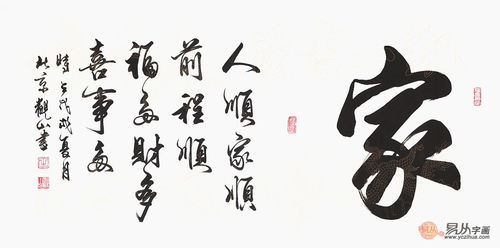 家
人順家順
前程順
福多財多
喜事多
時在戊戌夏月
北京觀山書
易从字画
www.yczihua.com